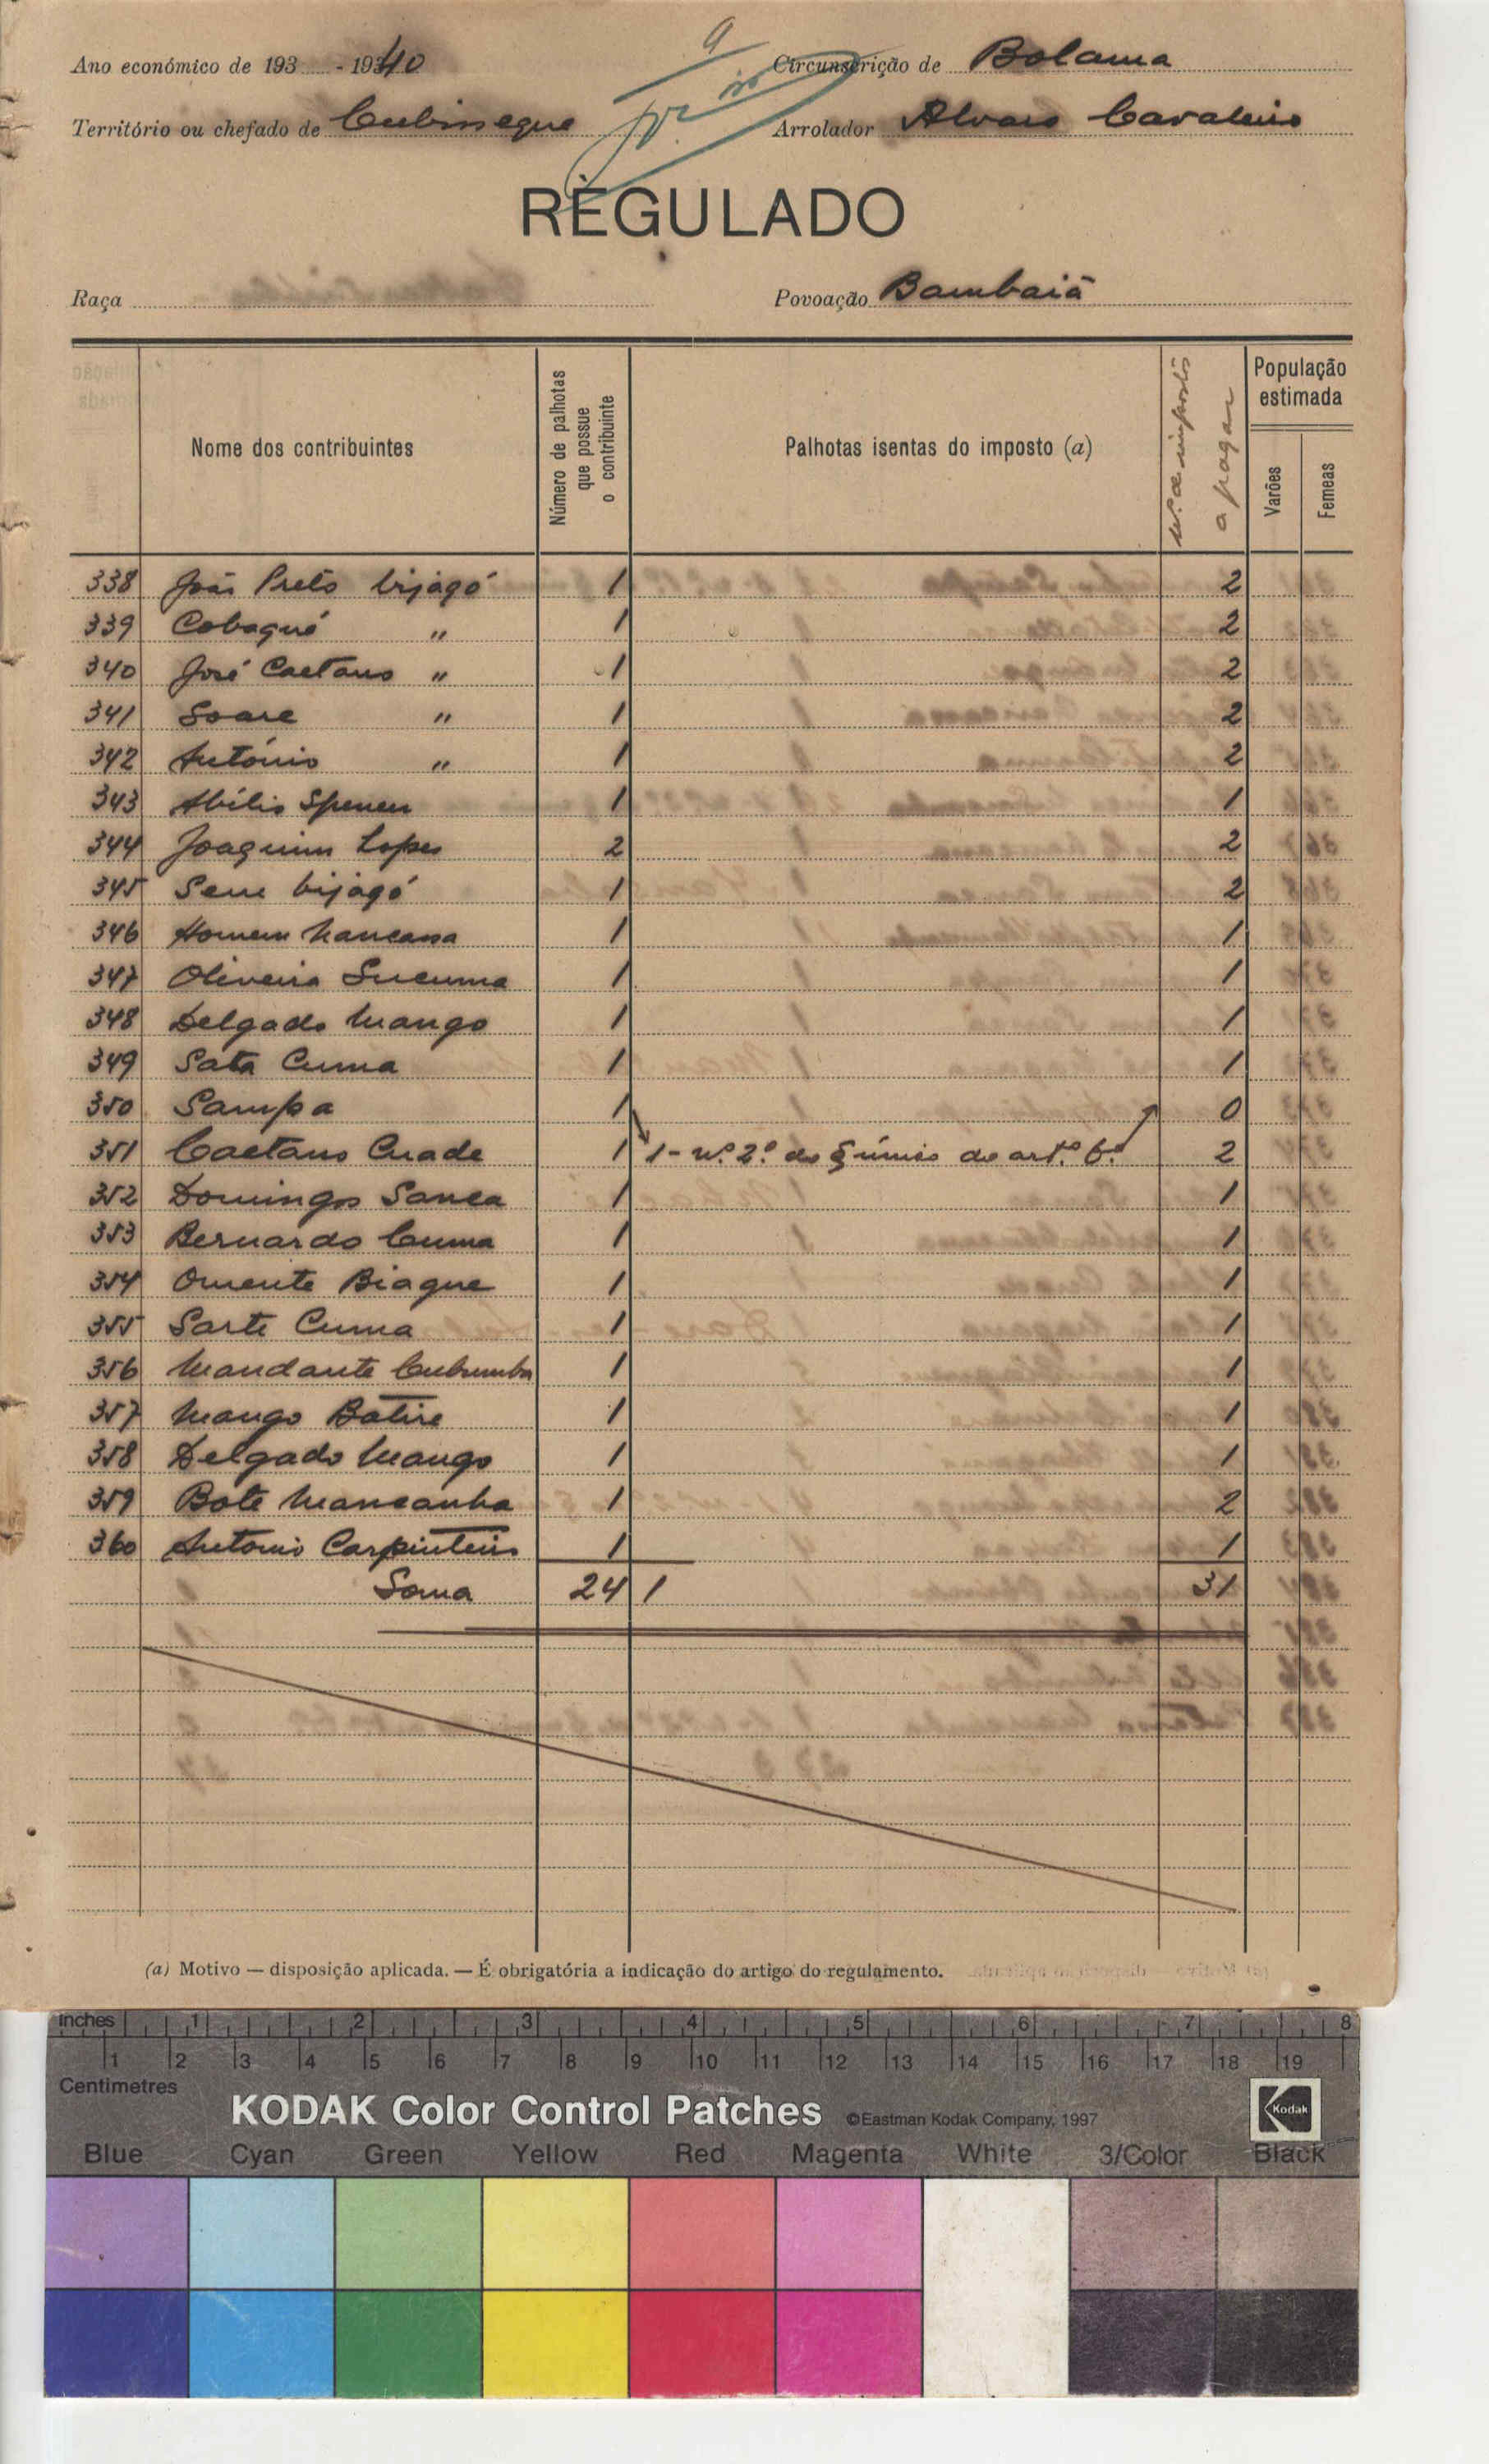 Ano económico de 193 - 1940 Circunscrição de Bolama
Território ou chefado de Cubisseque Arrolador Alvaro Cavaleiro
REGULADO
Raça Povoação Bambaiã
Nome dos contribuintes Número de palhotas que possue o contribuinte Palhotas isentas do imposto (a) N.º de impostos a pagar População estimada Varões Femeas
338 João Preto bijagó 1 2
339 Cobagué " 1 2
340 José Caetano " 1 2
341 Soare " 1 2
342 António " 1 2
343 Abílio Spencer 1 1
344 Joaquim Lopes 2 2
345 Sene bijagó 1 2
346 Homem Mancassa 1 1
347 Oliveira Sucuma 1 1
348 Delgado Mango 1 1
349 Sata Cuma 1 1
350 Sampa 1 0
351 Caetano Cuade 1 1 - N.º 2.º do § único do art.º 6.º 2
352 Domingos Sanca 1 1
353 Bernardo Cuma 1 1
354 Omente Biague 1 1
355 Sarte Cuma 1 1
356 Mandante Cubumba 1 1
357 Mango Batire 1 1
358 Delgado Mango 1 1
359 Bote Mancanha 1 2
360 Antonio Carpinteiro 1 1
Soma 24 1 31
(a) Motivo — disposição aplicada. — É obrigatória a indicação do artigo do regulamento.
inches 1 2 3 4 5 6 7 8
1 2 3 4 5 6 7 8 9 10 11 12 13 14 15 16 17 18 19
Centimetres
KODAK Color Control Patches ©Eastman Kodak Company, 1997 Kodak
Blue Cyan Green Yellow Red Magenta White 3/Color Black